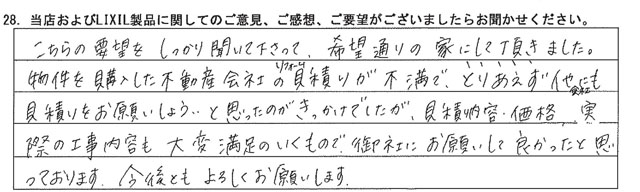 28. 当店およびLIXIL製品に関してのご意見、ご感想、ご要望がございましたらお聞かせください。
こちらの要望をしっかり聞いて下さって、希望通りの家にして頂きました。
物件を購入した不動産会社のリフォーム見積りが不満で、とりあえず他会社にも
見積りをお願いしよう…と思ったのがきっかけでしたが、見積内容・価格、実
際の工事内容も大変満足のいくもので、御社にお願いして良かったと思
っております。今後ともよろしくお願いします。